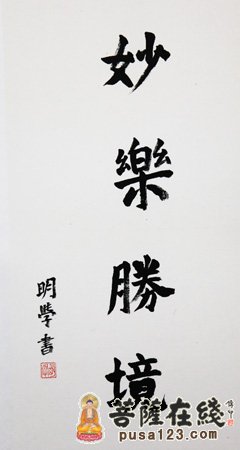 妙樂勝境
明學書
菩薩在綫
pusa123.com